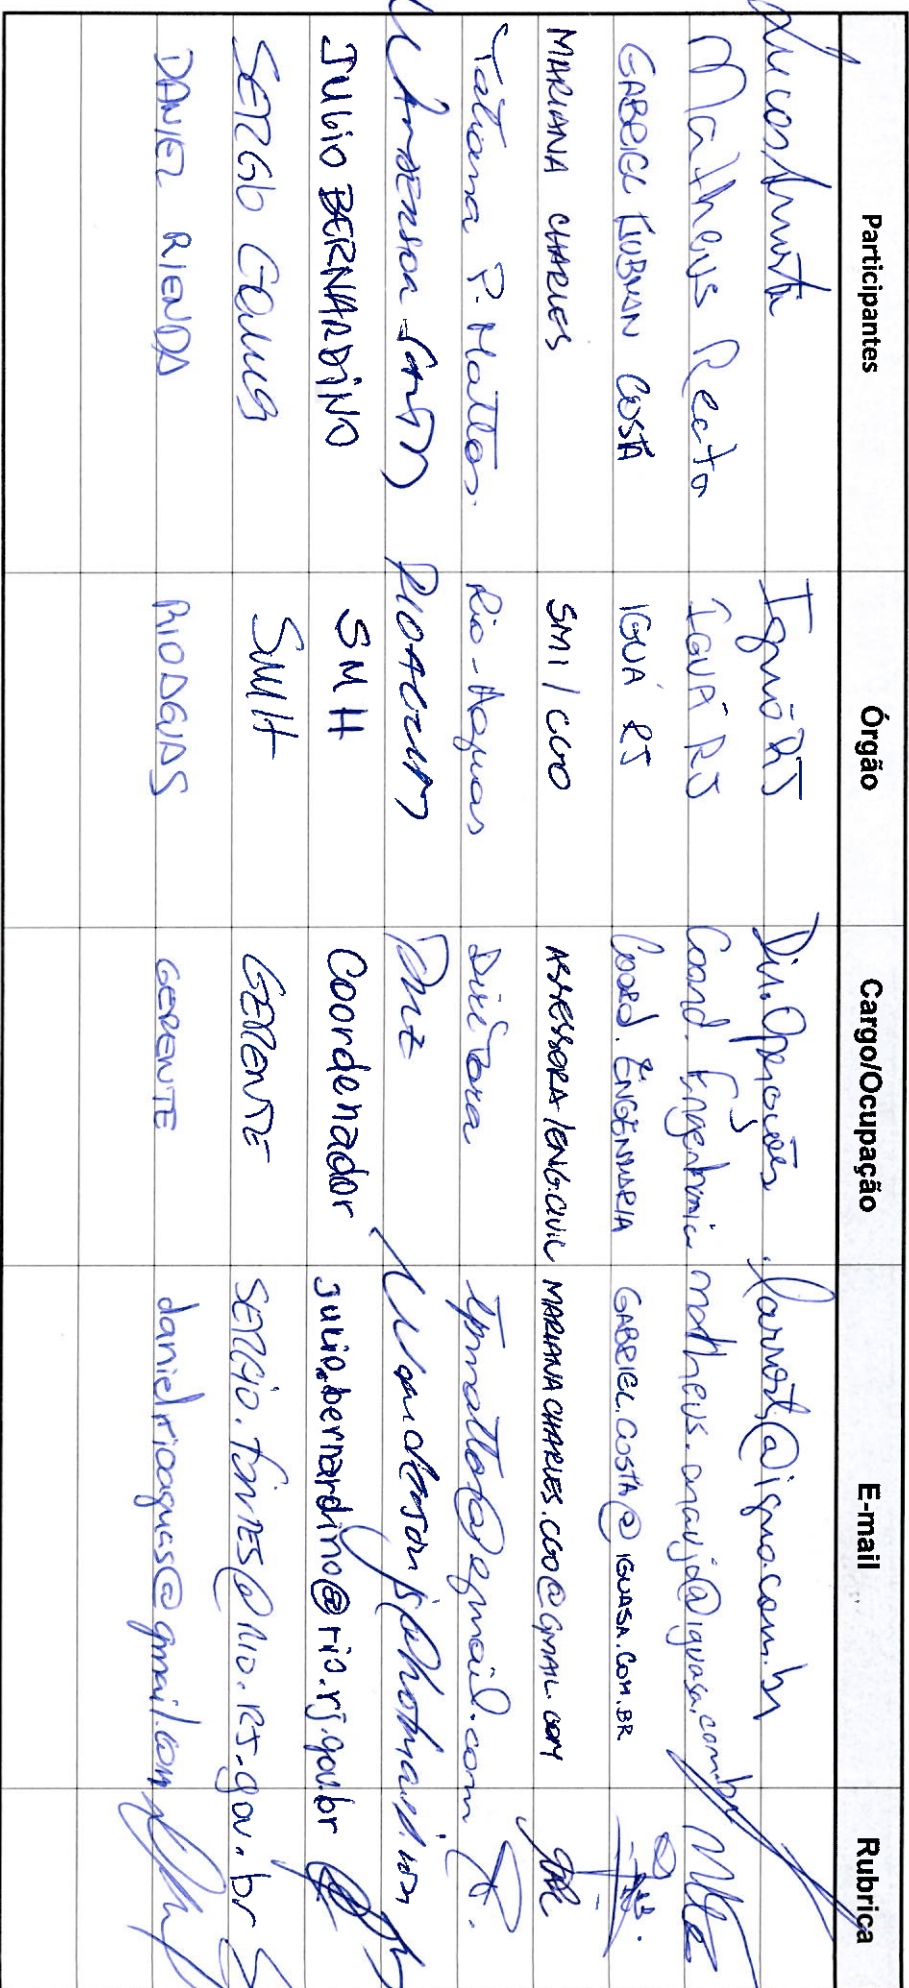 Participantes Órgão Cargo/Ocupação E-mail Rubrica
Lucas Iguá RJ Dir. Operações @igua.com.br
Matheus Iguá RJ Coord. Engenharia matheus.araujo@iguasa.com.br
GABRIEL COSTA IGUÁ RJ Coord. ENGENHARIA GABRIEL.COSTA@IGUASA.COM.BR
MARIANA CHARLES SMI/CGO ASSESSORA/ENG.CIVIL MARIANACHARLES.CGO@GMAIL.COM
Tatiana P. Mattos. Rio-Águas Diretora tpmattos@gmail.com
JULIO BERNARDINO SMH Coordenador julio.bernardino@rio.rj.gov.br
SERGIO SMH GERENTE @RIO.RJ.gov.br
DANIEL RIENDA RIOAGUAS GERENTE danielrioaguas@gmail.com